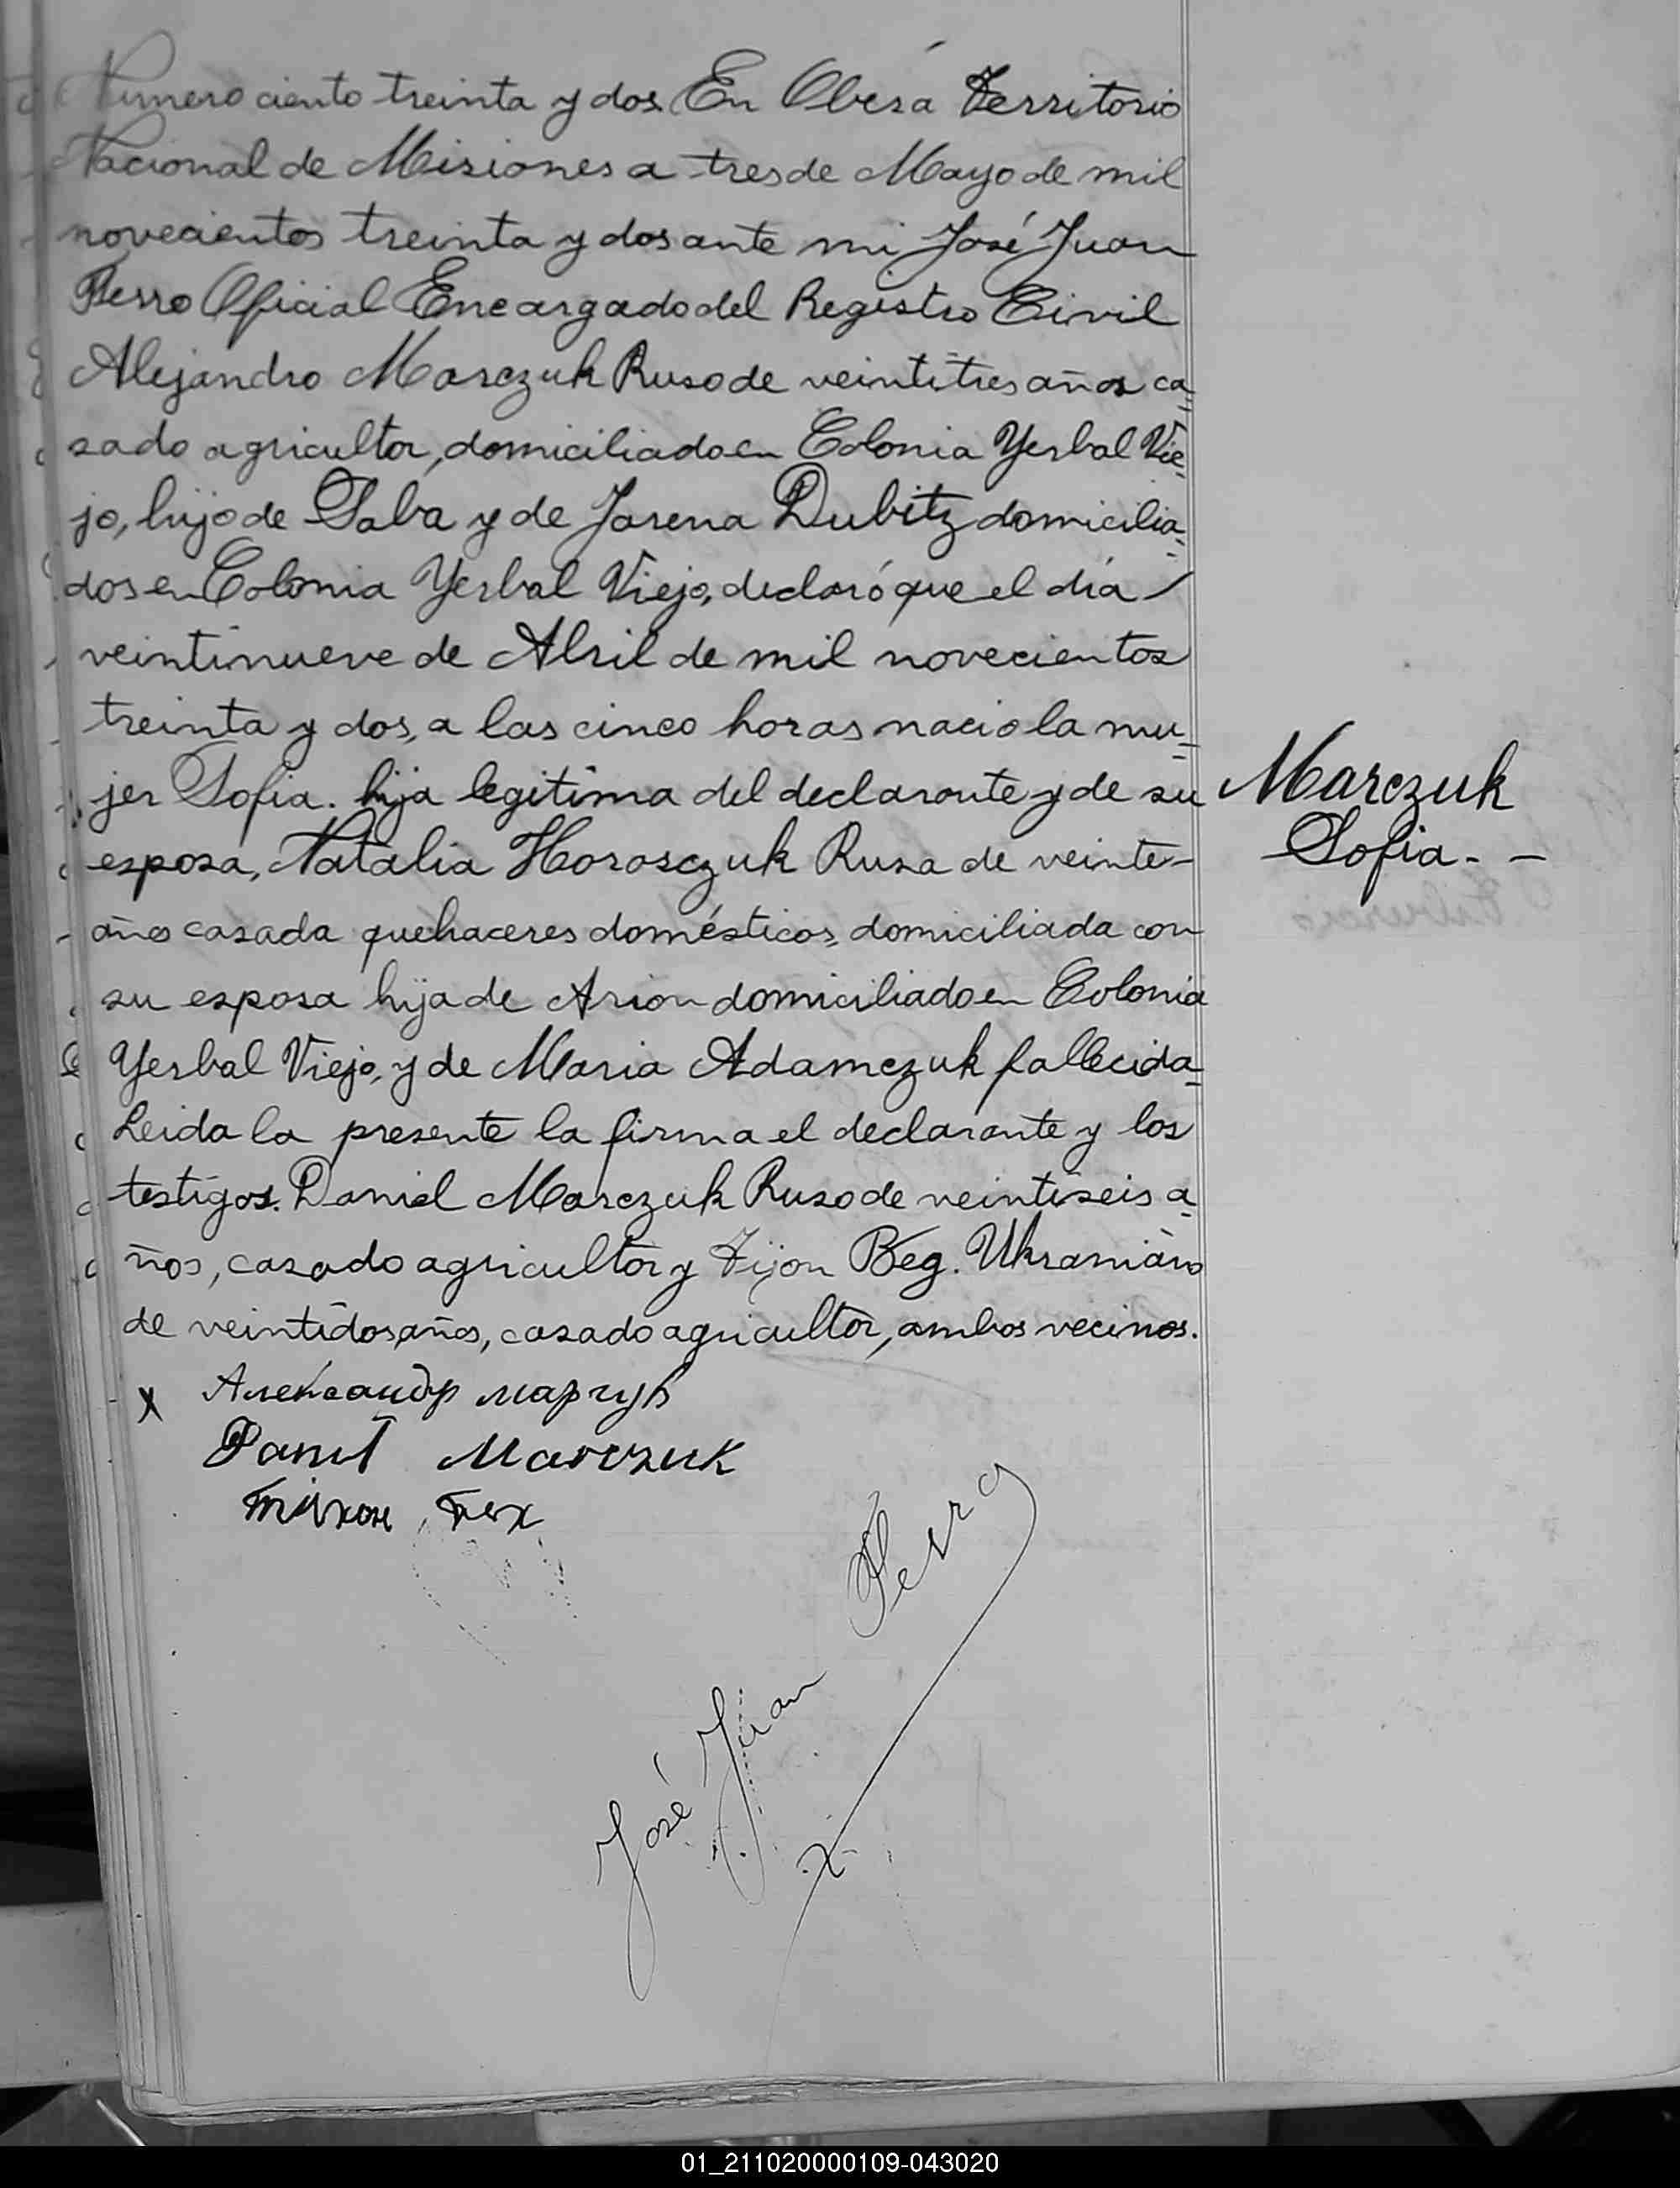 Numero ciento treinta y dos En Oberá Territorio
Nacional de Misiones a tres de Mayo de mil
novecientos treinta y dos ante mi José Juan
Perro Oficial Encargado del Registro Civil
Alejandro Marczuk Ruso de veintitres años ca=
sado agricultor, domiciliado en Colonia Yerbal Vie=
jo, hijo de Saba y de Jarena Dubitz domicilia=
dos en Colonia Yerbal Viejo, declaró que el día
veintinueve de Abril de mil novecientos
treinta y dos, a las cinco horas nacio la mu=
jer Sofia. hija legitima del declarante y de su
esposa, Natalia Horosczuk Rusa de veinte-
años casada quehaceres domésticos, domiciliada con
su esposa hija de Arion domiciliado en Colonia
Yerbal Viejo, y de Maria Adamczuk fallecida=
Leida la presente la firma el declarante y los
testigos. Daniel Marczuk Ruso de veintiseis a=
ños, casado agricultor y Tijon Beg. Ukraniano
de veintidos años, casado agricultor, ambos vecinos.
Marczuk
Sofia. -
x Александр марчук
Danil Marczuk
Тихон Бех
José Juan Perro
01_211020000109-043020